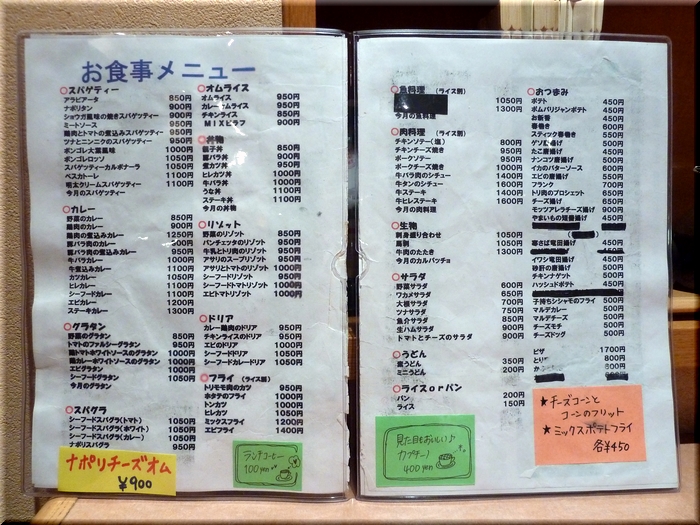 お食事メニュー
スパゲティー
アラビアータ 850円
ナポリタン 900円
ショウガ風味の焼きスパゲッティー 900円
ミートソース 950円
鶏肉とトマトの煮込みスパゲッティー 950円
ツナとニンニクのスパゲッティー 950円
ボンゴレ大葉風味 1000円
ボンゴレロッソ 1050円
スパゲッティーカルボナーラ 1050円
ペスカトーレ 1100円
明太クリームスパゲッティー 1100円
今月のスパゲッティー
カレー
野菜のカレー 850円
鶏肉のカレー 900円
鶏肉の煮込みカレー 1250円
豚バラ肉のカレー 950円
牛バラカレー 1000円
牛煮込みカレー 1100円
カツカレー 1050円
ヒレカレー 1100円
シーフードカレー 1100円
エビカレー 1200円
ステーキカレー 1300円
グラタン
野菜のグラタン 850円
トマトのファルシーグラタン 950円
鶏トマトホワイトソースのグラタン 1000円
鶏カレーホワイトソースのグラタン 1000円
エビグラタン 1000円
シーフードグラタン 1050円
今月のグラタン
スパグラ
シーフードスパグラ(トマト) 1050円
シーフードスパグラ(ホワイト) 1050円
シーフードスパグラ(カレー) 1050円
ナポリスパグラ 950円
ナポリチーズオム
¥900
オムライス
オムライス 950円
カレーオムライス 950円
チキンライス 850円
MIXピラフ 900円
丼物
親子丼 850円
豚バラ丼 900円
煮カツ丼 950円
ヒレカツ丼 1000円
牛バラ丼 1000円
うな丼 1100円
ステーキ丼 1100円
今月の丼物
リゾット
野菜のリゾット 850円
パンチェッタのリゾット 950円
牛乳とトリ肉のリゾット 950円
アサリのスープリゾット 950円
アサリとトマトのリゾット 1000円
シーフードリゾット 1000円
シーフードトマトリゾット 1000円
エビトマトリゾット 1000円
ドリア
カレー鶏肉のドリア 950円
チキンライスのドリア 950円
エビのドリア 1000円
シーフードドリア 1050円
シーフードカレードリア 1050円
フライ (ライス別)
トリモモ肉のカツ 950円
ホタテのフライ 1000円
トンカツ 1000円
ヒレカツ 1050円
ミックスフライ 1200円
エビフライ 1400円
ランチコーヒー
100yen
魚料理 (ライス別)
1050円
1300円
今月の魚料理
肉料理 (ライス別)
チキンソテー(塩) 800円
チキンチーズ焼き 900円
ポークソテー 950円
ポークチーズ焼き 1000円
牛バラ肉のシチュー 1400円
牛タンのシチュー 1600円
牛ステーキ 1400円
牛ヒレステーキ 1600円
今月の肉料理
生物
刺身盛り合わせ 1050円
馬刺 1050円
牛肉のたたき 1300円
今月のカルパッチョ
サラダ
野菜サラダ 600円
ワカメサラダ 650円
大根サラダ 700円
ツナサラダ 750円
魚介サラダ 850円
生ハムサラダ 900円
トマトとチーズのサラダ 900円
うどん
釜うどん 350円
ミニうどん 200円
ライスorパン
パン 200円
ライス 150円
見た目もおいしい♪
カプチーノ
400yen
おつまみ
ポテト 450円
ポムパリジャンポテト 450円
お新香 450円
春巻き 600円
スティック春巻き 550円
ゲソの唐揚げ 500円
たこ唐揚げ 450円
ナンコツ唐揚げ 500円
イカのバターソース 600円
エビの唐揚げ 600円
フランク 700円
トリ肉のブロシェット 650円
チーズ揚げ 600円
モッツアレラチーズ揚げ 900円
やまいもの短冊揚げ 450円
寒さば竜田揚げ
イワシ竜田揚げ 500円
砂肝の唐揚げ 500円
チキンナゲット 500円
ハッシュドポテト
子持ちシシャモのフライ 500円
マルデカレー 500円
マルデチーズ 500円
チーズモチ 500円
チーズドッグ 500円
ピザ 1700円
★チーズコーンと
コーンのフリット
★ミックスポテトフライ
各¥450